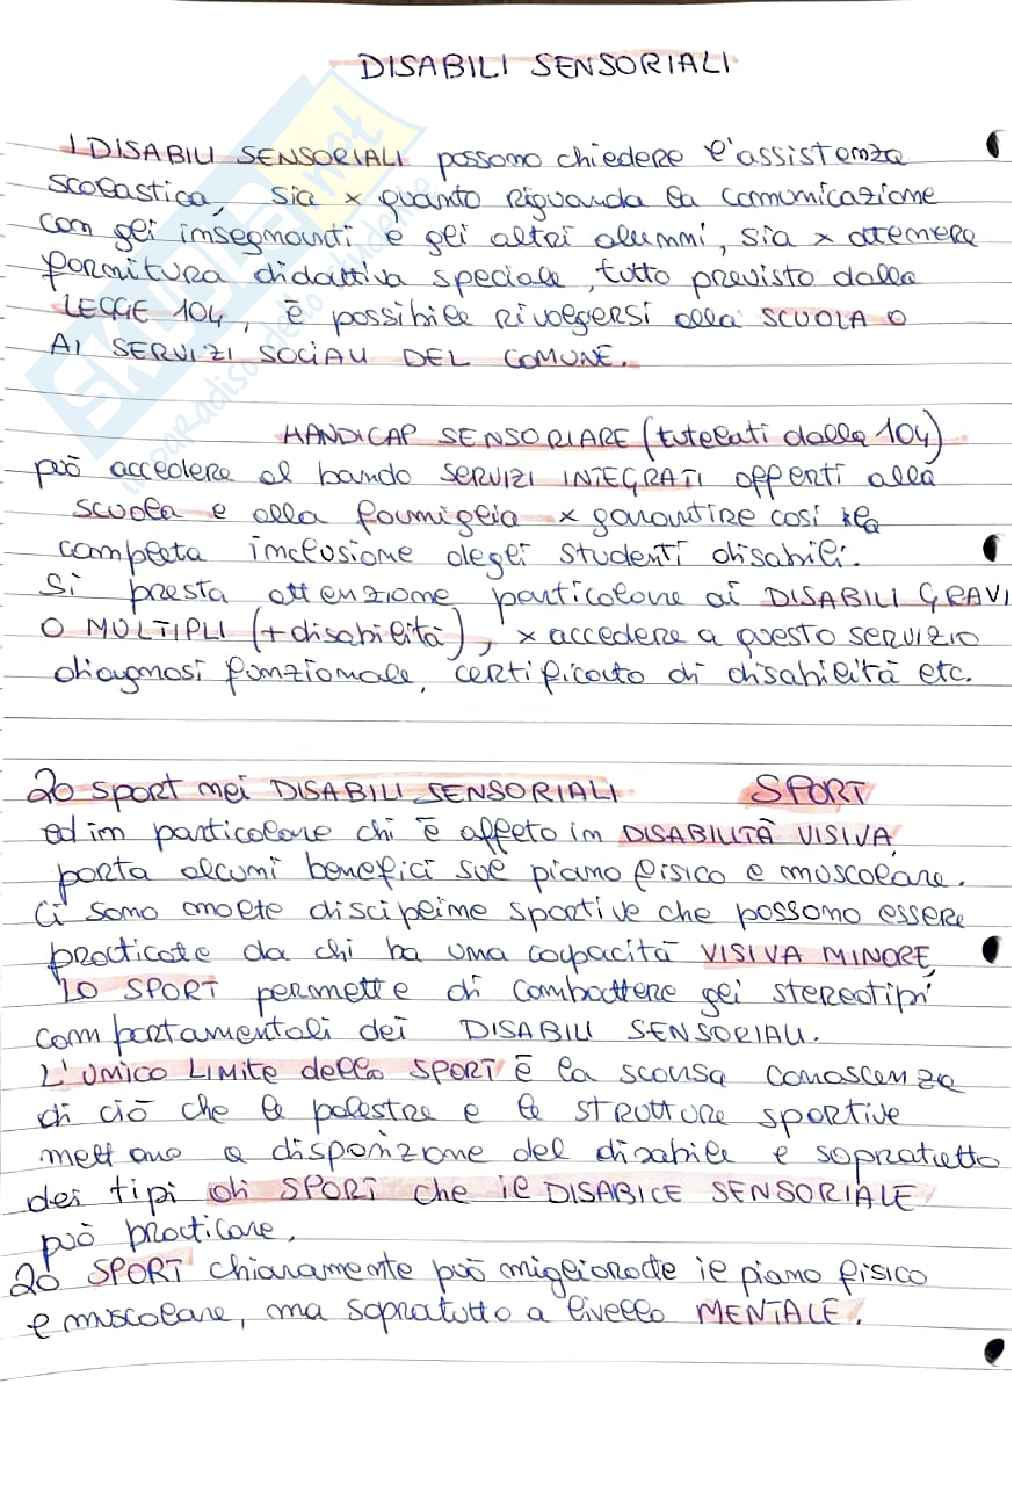 DISABILI SENSORIALI
I DISABILI SENSORIALI possono chiedere l'assistenza
scolastica, sia x quanto riguarda la comunicazione
con gli insegnanti e gli altri alunni, sia x ottenere
fornitura didattiva speciale, tutto previsto dalla
LEGGE 104, è possibile rivolgersi alla SCUOLA O
AI SERVIZI SOCIALI DEL COMUNE.
HANDICAP SENSORIARE (tutelati dalla 104)
può accedere al bando SERVIZI INTEGRATI offerti alla
scuola e alla famiglia x garantire così la
completa inclusione degli studenti disabili.
Si presta attenzione particolare ai DISABILI GRAVI
O MULTIPLI (+ disabilità), x accedere a questo servizio
diagnosi funzionale, certificato di disabilità etc.
SPORT
Lo sport nei DISABILI SENSORIALI
ed in particolare chi è affeto in DISABILITÀ VISIVA,
porta alcuni benefici sul piano fisico e muscolare.
Ci sono molte discipline sportive che possono essere
praticate da chi ha una capacità VISIVA MINORE,
LO SPORT permette di combattere gli stereotipi
comportamentali dei DISABILI SENSORIALI.
L'UNICO LIMITE dello SPORT è la scarsa conoscenza
di ciò che le palestre e le strutture sportive
mettono a disposizione del disabile e sopratutto
dei tipi di SPORT che il DISABILE SENSORIALE
può praticare.
Lo SPORT chiaramente può migliorare il piano fisico
e muscolare, ma sopratutto a livello MENTALE.
SKUOLA.net
il paradiso dello studente